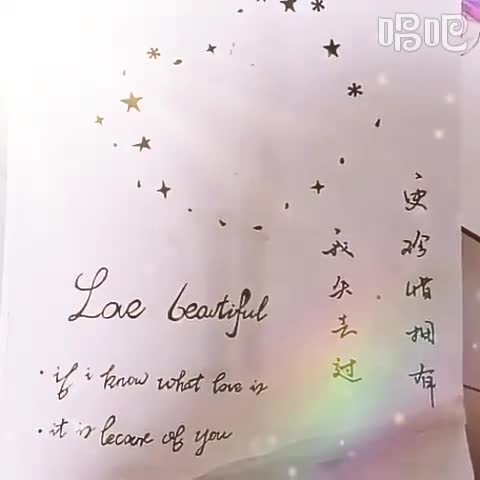 唱吧
更珍惜拥有
我失去过
Love beautiful
· if i know what love is
· it is because of you